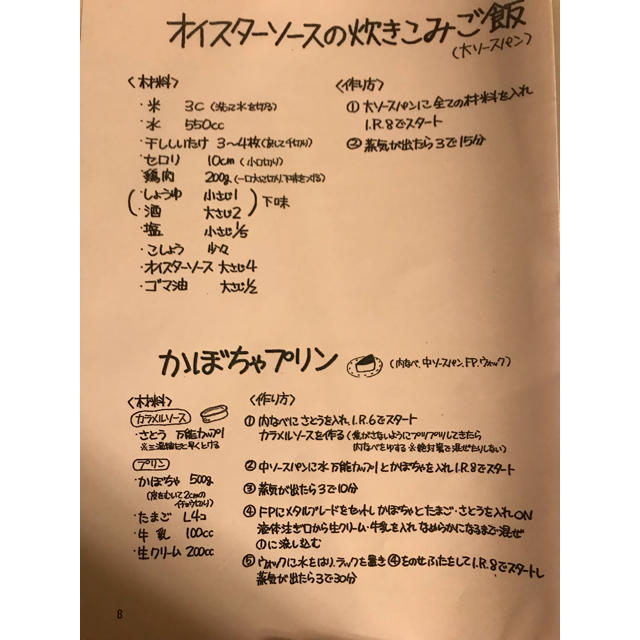 オイスターソースの炊きこみご飯
(大ソースパン)
〈材料〉
・米 3C (洗って水を切る)
・水 550cc
・干ししいたけ 3〜4枚(戻して千切り)
・セロリ 10cm (小口切り)
・鶏肉 200g(一口大に切り、下味をつける)
(・しょうゆ 小さじ1
・酒 大さじ2) 下味
・塩 小さじ1/5
・こしょう 少々
・オイスターソース 大さじ4
・ゴマ油 大さじ1/2
〈作り方〉
① 大ソースパンに全ての材料を入れ
I.R.8でスタート
② 蒸気が出たら3で15分
かぼちゃプリン
(内なべ、中ソースパン、FP、ウォック)
〈材料〉
カラメルソース
・さとう 万能カップ1
※三温糖だと早くとける
プリン
・かぼちゃ 500g
(皮をむいて2cmの
イチョウ切り)
・たまご L4コ
・牛乳 100cc
・生クリーム 200cc
〈作り方〉
① 内なべにさとうを入れ、I.R.6でスタート
カラメルソースを作る(焦がさないようにプツプツしてきたら
内なべをゆする ※絶対箸で混ぜたりしない)
② 中ソースパンに水 万能カップ1とかぼちゃを入れI.R.8でスタート
③ 蒸気が出たら3で10分
④ FPにメタルブレードをセットしかぼちゃとたまご・さとうを入れON
液体注ぎ口から生クリーム・牛乳を入れ なめらかになるまで混ぜ
①に流し込む
⑤ ウォックに水をはり、ラックを置き④をのせふたをしてI.R.8でスタートし
蒸気が出たら3で30分
8